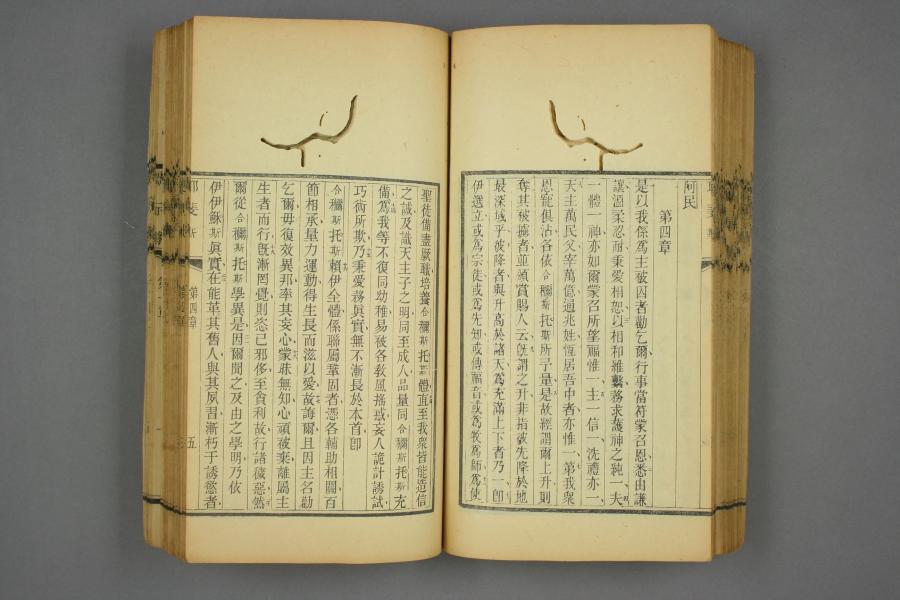 阿民
第四章
是以我係為主被囚者勸乞爾行事當符蒙召恩悉由謙
讓溫柔忍耐秉愛相恕以相和維繫務求護神之純一夫
一體一神亦如爾蒙召所望福惟一主一信一洗禮亦一
天主萬民父宰萬億通兆姓恆居吾中者亦惟一第我眾
恩寵俱沾各依合彌斯托斯所予量是故經謂爾上升則
奪其被擄者並頒賞賜人云旣謂之升非指彼先降於地
最深域乎彼降者與升高於諸天為充滿上下者乃一即
伊選立或為宗徒或為先知或傳福音或為牧為師為使
聖徒備盡厥職培養合彌斯托斯體直至我衆皆能造信
之誠及識天主子之明同至成人品量同合彌斯托斯充
備為我等不復同幼稚易被各教風搖或妄人詭計誘試
巧術所欺乃秉愛務眞實無不漸長於本首卽
合彌斯托斯賴伊全體係聯屬鞏固者憑各輔助相關百
節相承量力運動得生長而滋以愛故誨爾且因主名勸
乞爾毋復效異邦率其妄心蒙昧無知心頑被棄離屬主
生者而行旣漸罔覺則恣己邪侈至貪利故行諸穢惡然
爾從合彌斯托斯學異是因爾聞之及由之學明乃依
伊伊穌斯眞實在能革其舊人與其夙習漸朽于誘慾者
第四章
五